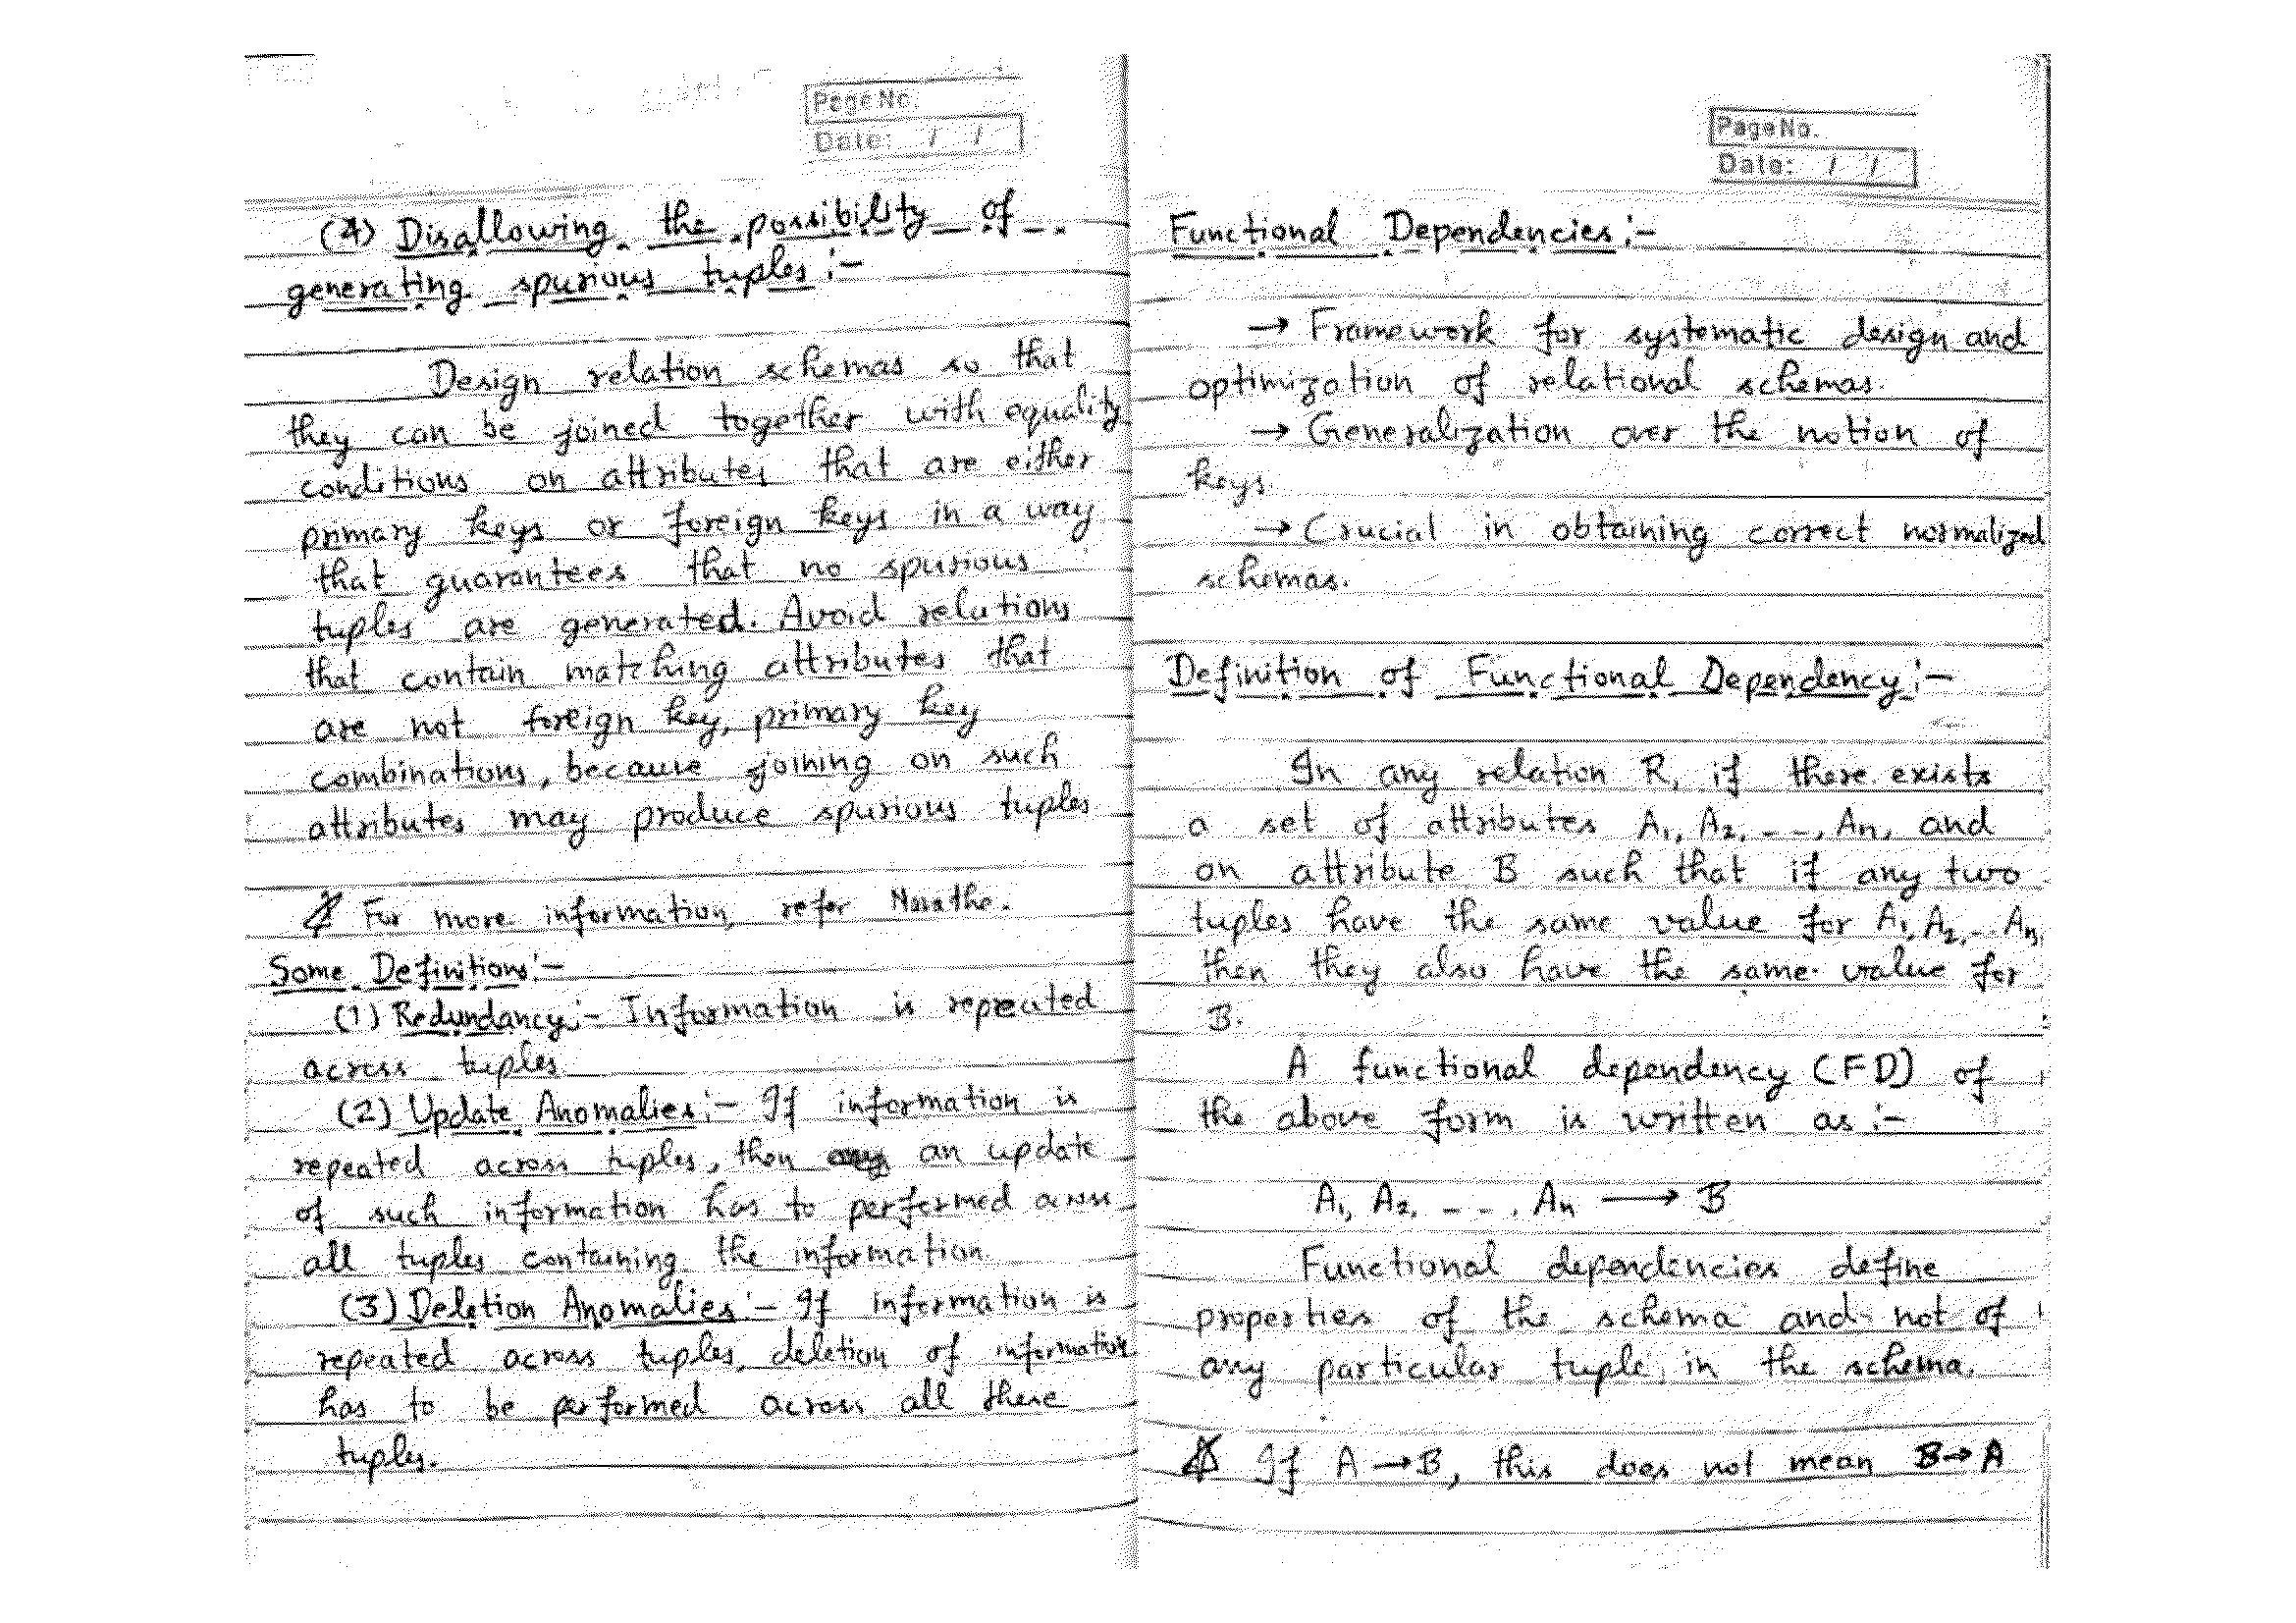 Page No.
Date: / /
(4) Disallowing the possibility of
generating spurious tuples :-
Design relation schemas so that
they can be joined together with equality
conditions on attributes that are either
primary keys or foreign keys in a way
that guarantees that no spurious
tuples are generated. Avoid relations
that contain matching attributes that
are not foreign key, primary key
combinations, because joining on such
attributes may produce spurious tuples
For more information, refer Navathe.
Some Definitions:-
(1) Redundancy:- Information is repeated
across tuples.
(2) Update Anomalies:- If information is
repeated across tuples, then an update
of such information has to performed across
all tuples containing the information.
(3) Deletion Anomalies:- If information is
repeated across tuples, deletion of information
has to be performed across all these
tuples.
Page No.
Date: / /
Functional Dependencies:-
→ Framework for systematic design and
optimization of relational schemas.
→ Generalization over the notion of
keys.
→ Crucial in obtaining correct normalized
schemas.
Definition of Functional Dependency:-
In any relation R, if there exists
a set of attributes A1, A2, - - -, An, and
an attribute B such that if any two
tuples have the same value for A1, A2, - - An,
then they also have the same value for
B.
A functional dependency (FD) of
the above form is written as :-
A1, A2, - - -, An → B
Functional dependencies define
properties of the schema and not of
any particular tuple in the schema.
If A → B, this does not mean B → A